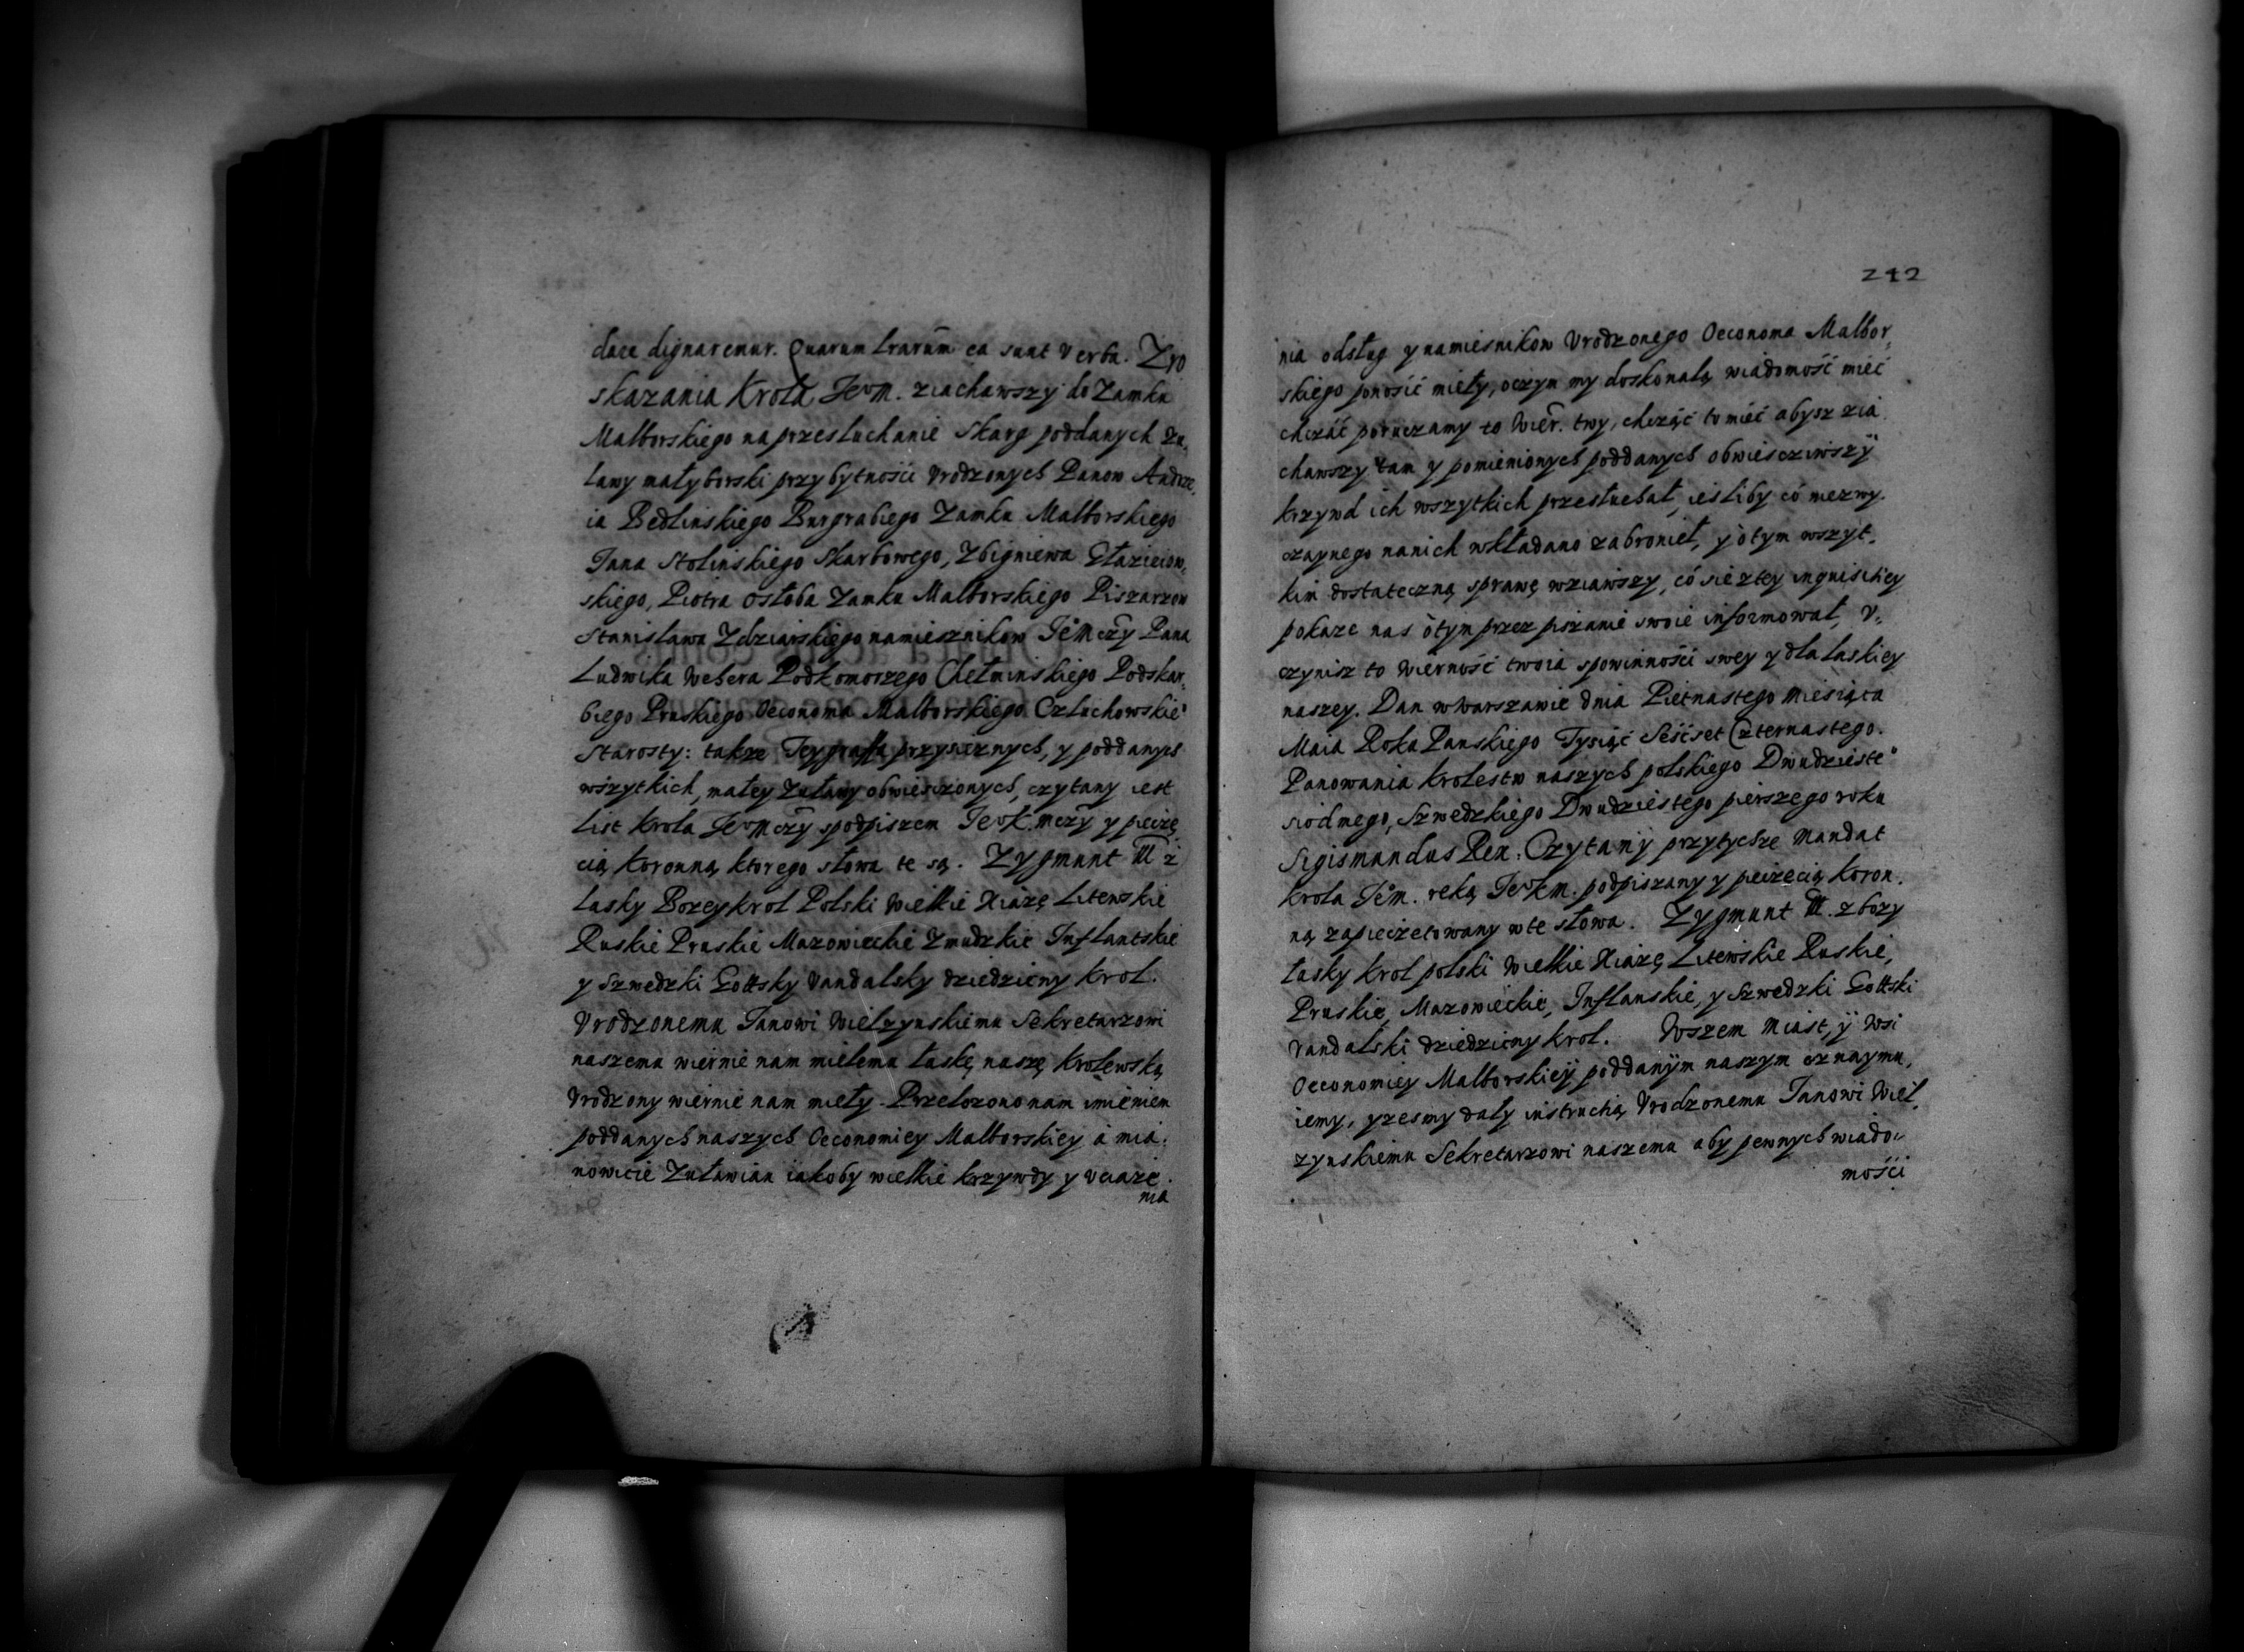 dare dignaremur. Quarum lrarum̃ ea sunt verba. Zro
skazania Krola Je͞oM. ziachawszy do Zamku
Malborskiego na przesluchanie skarg poddanych Zu,
lawy małyborski przybytnośći Vrodzonych Panow Andrze,
ia Bedlinskiego Burgrabiego Zamku Malborskiego
Jana Stolinskiego Skarbowego, Zbigniewa
skiego, Piotra Osłoba Zamku Malborskiego Piszarzow
Stanisława Zdziarskiego namiesznikow Je°M czy Pana
Ludwika Wehera Podkomorzego Chełminskiego Podskar,
biego Pruskiego Oeconoma Malborskiego Czluchowskie°
Starosty: takze przysieznych, y poddanych
wszytkich, małey Zuławy obwiesczonych, czytany iest
List Krola JeoM czy spodpiszem JeoK mczy y pieczę
cią koronną ktorego słowa te są. Zygmunt III z
lasky Bozey krol Polski Wielkie Xiążę Litewskie
Ruskie Pruskie Mazowieckie Zmudzkie Inflantskie
y Szwedzki Gottsky Vandalsky dziedziczny krol.
Vrodzonemu Janowi Wielzynskiemu Sekretarzowi
naszemu wiernie nam miłemu łaskę naszę Krolewską
Vrodzony wiernie nam miely. Przelozono nam imieniem
poddanych naszych Oeconomiey Malborskiey à mia,
nowicie Zuławian iakoby wielkie krzywdy y vciąże.
nia
242
nia odsług y namiesnikow Vrodzonego Oeconoma Malbor,
skiego ponosić miely, oczym my doskonałą wiadomość mieć
chcząć poruczamy to Wier. twy, chcząć to mieć abysz zia
chawszy tam y pomienionych poddanych obwiescziwszÿ
krzywd ich wszytkich przesłuchał, iesliby có niezwy.
czaynego nanich wkładano zabronieł, y òtym wszyt,
kim dostateczną sprawę wziawszy, có sie ztey inquisitiey
pokaze nas òtym przez piszanie swoie informował, V,
czynisz to wierność twoia spowinnośći swey y dla laskiey
naszey. Dan w Warszawie dnia Pietnastego Miesiąca
Maia Roku Panskiego Tysiąć Seśćset Czternastego.
Panowania Krolestw naszych polskiego Dwudzieste°
siodmego, Szwedzkiego Dwudziestego pierszego roku
Sigismundus Rex. Czytanÿ przytychze Mandat
krola Je°M. reką JeoKM. podpiszany y pieczecią koron.
ną zapieczetowany wte słowa. Zygmunt III. z bozy
łasky krol polski Wielkie Xiążę Litewskie Ruskie,
Pruskie, Mazowieckie, Inflanskie, y Szwedzki Gottski
Vandalski dziedziczny krol. Wszem Miast, ÿ Wsi
Oeconomiey Malborskieÿ poddanÿm naszym oznaymu,
iemy, yzesmy dały instructią Vrodzonemu Janowi Wiel,
zynskiemu Sekretarzowi naszemu aby pewnych wiado,
mośći